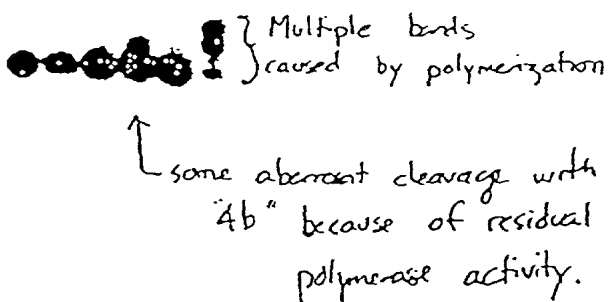 Multiple bands
caused by polymerization
some aberrant cleavage with
"4b" because of residual
polymerase activity.